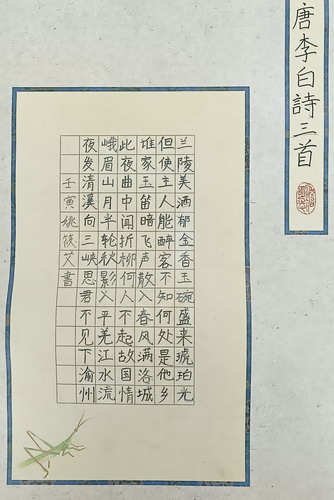 唐李白詩三首
兰陵美酒郁金香玉碗盛来琥珀光
但使主人能醉客不知何处是他乡
谁家玉笛暗飞声散入春风满洛城
此夜曲中闻折柳何人不起故国情
峨眉山月半轮秋影入平羌江水流
夜发清溪向三峡思君不见下渝州
壬寅姚筱艾書